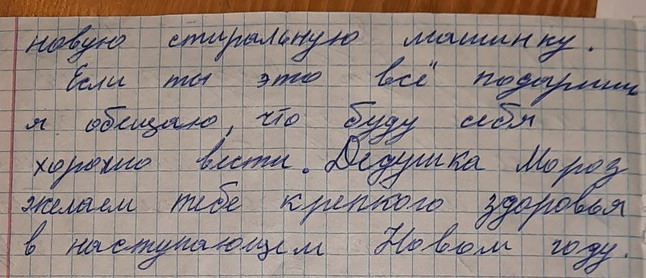 новую стиральную машинку.
Если ты это всё подариш
я обещаю, что буду себя
хорошо вести. Дедушка Мороз
желаем тебе крепкого здоровья
в наступающем Новом году.